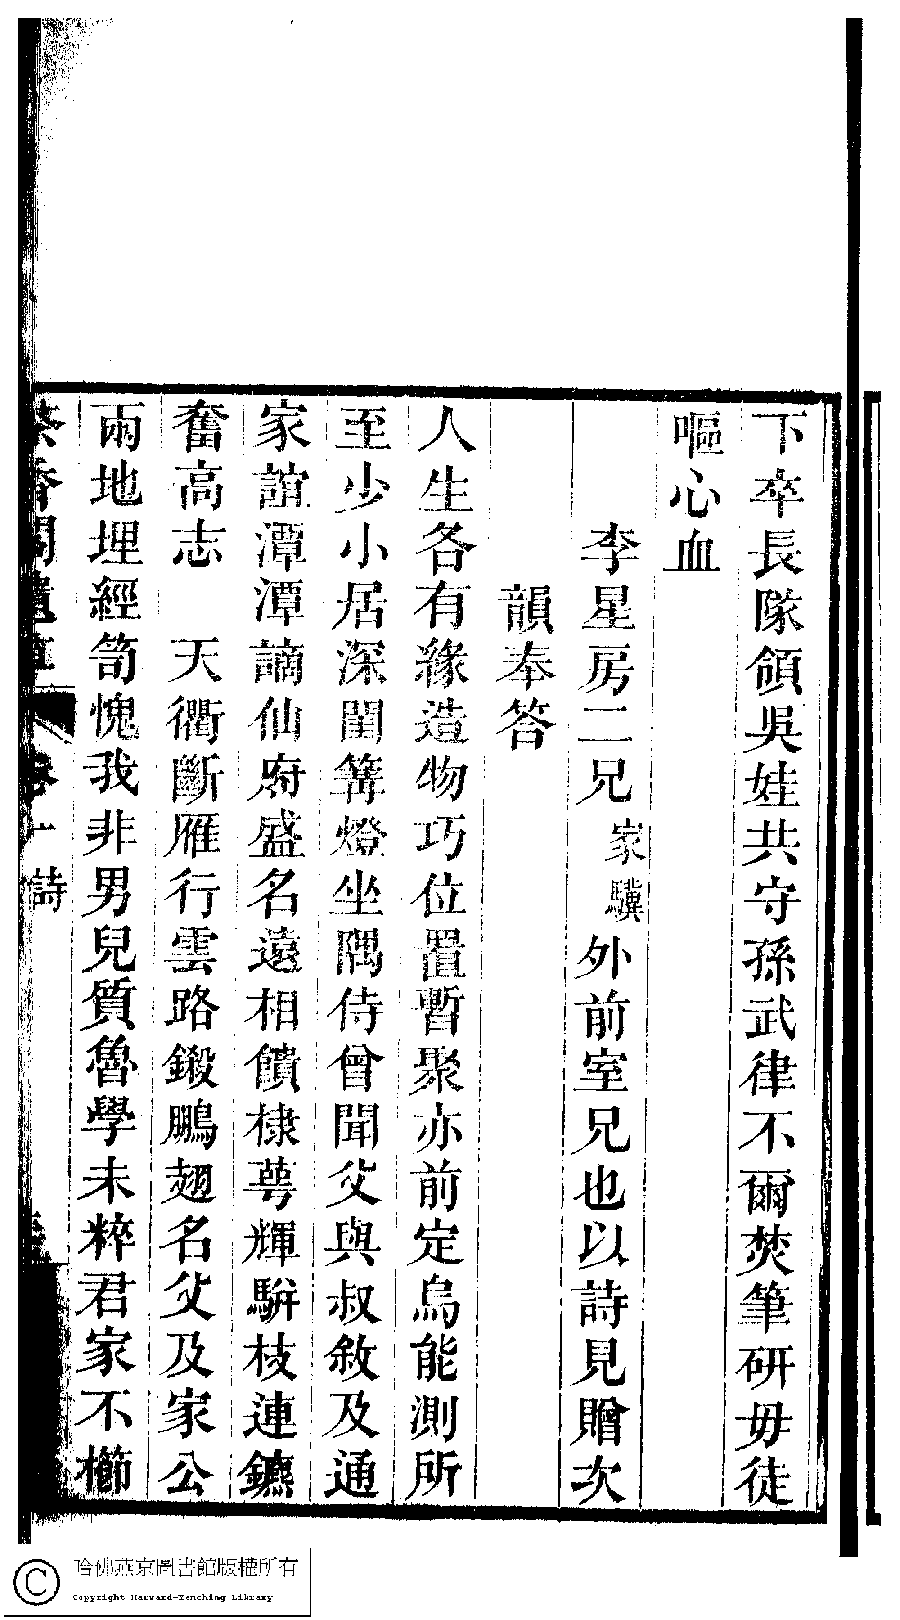 下卒長隊領吳娃共守孫武律不爾焚筆研毋徒
嘔心血
李星房二兄家驥外前室兄也以詩見贈次
韻奉答
人生各有緣造物巧位置暫聚亦前定烏能測所
至少小居深閨篝燈坐隅侍曾聞父與叔敘及通
家誼潭潭謫仙府盛名遠相饋棣萼輝駢枝連鑣
奮高志 天衢斷雁行雲路鎩鵬翅名父及家公
兩地埋經笥愧我非男兒質魯學未粹君家不櫛
卷十 詩
哈佛燕京圖書館版權所有
Copyright Harvard-Yenching Library